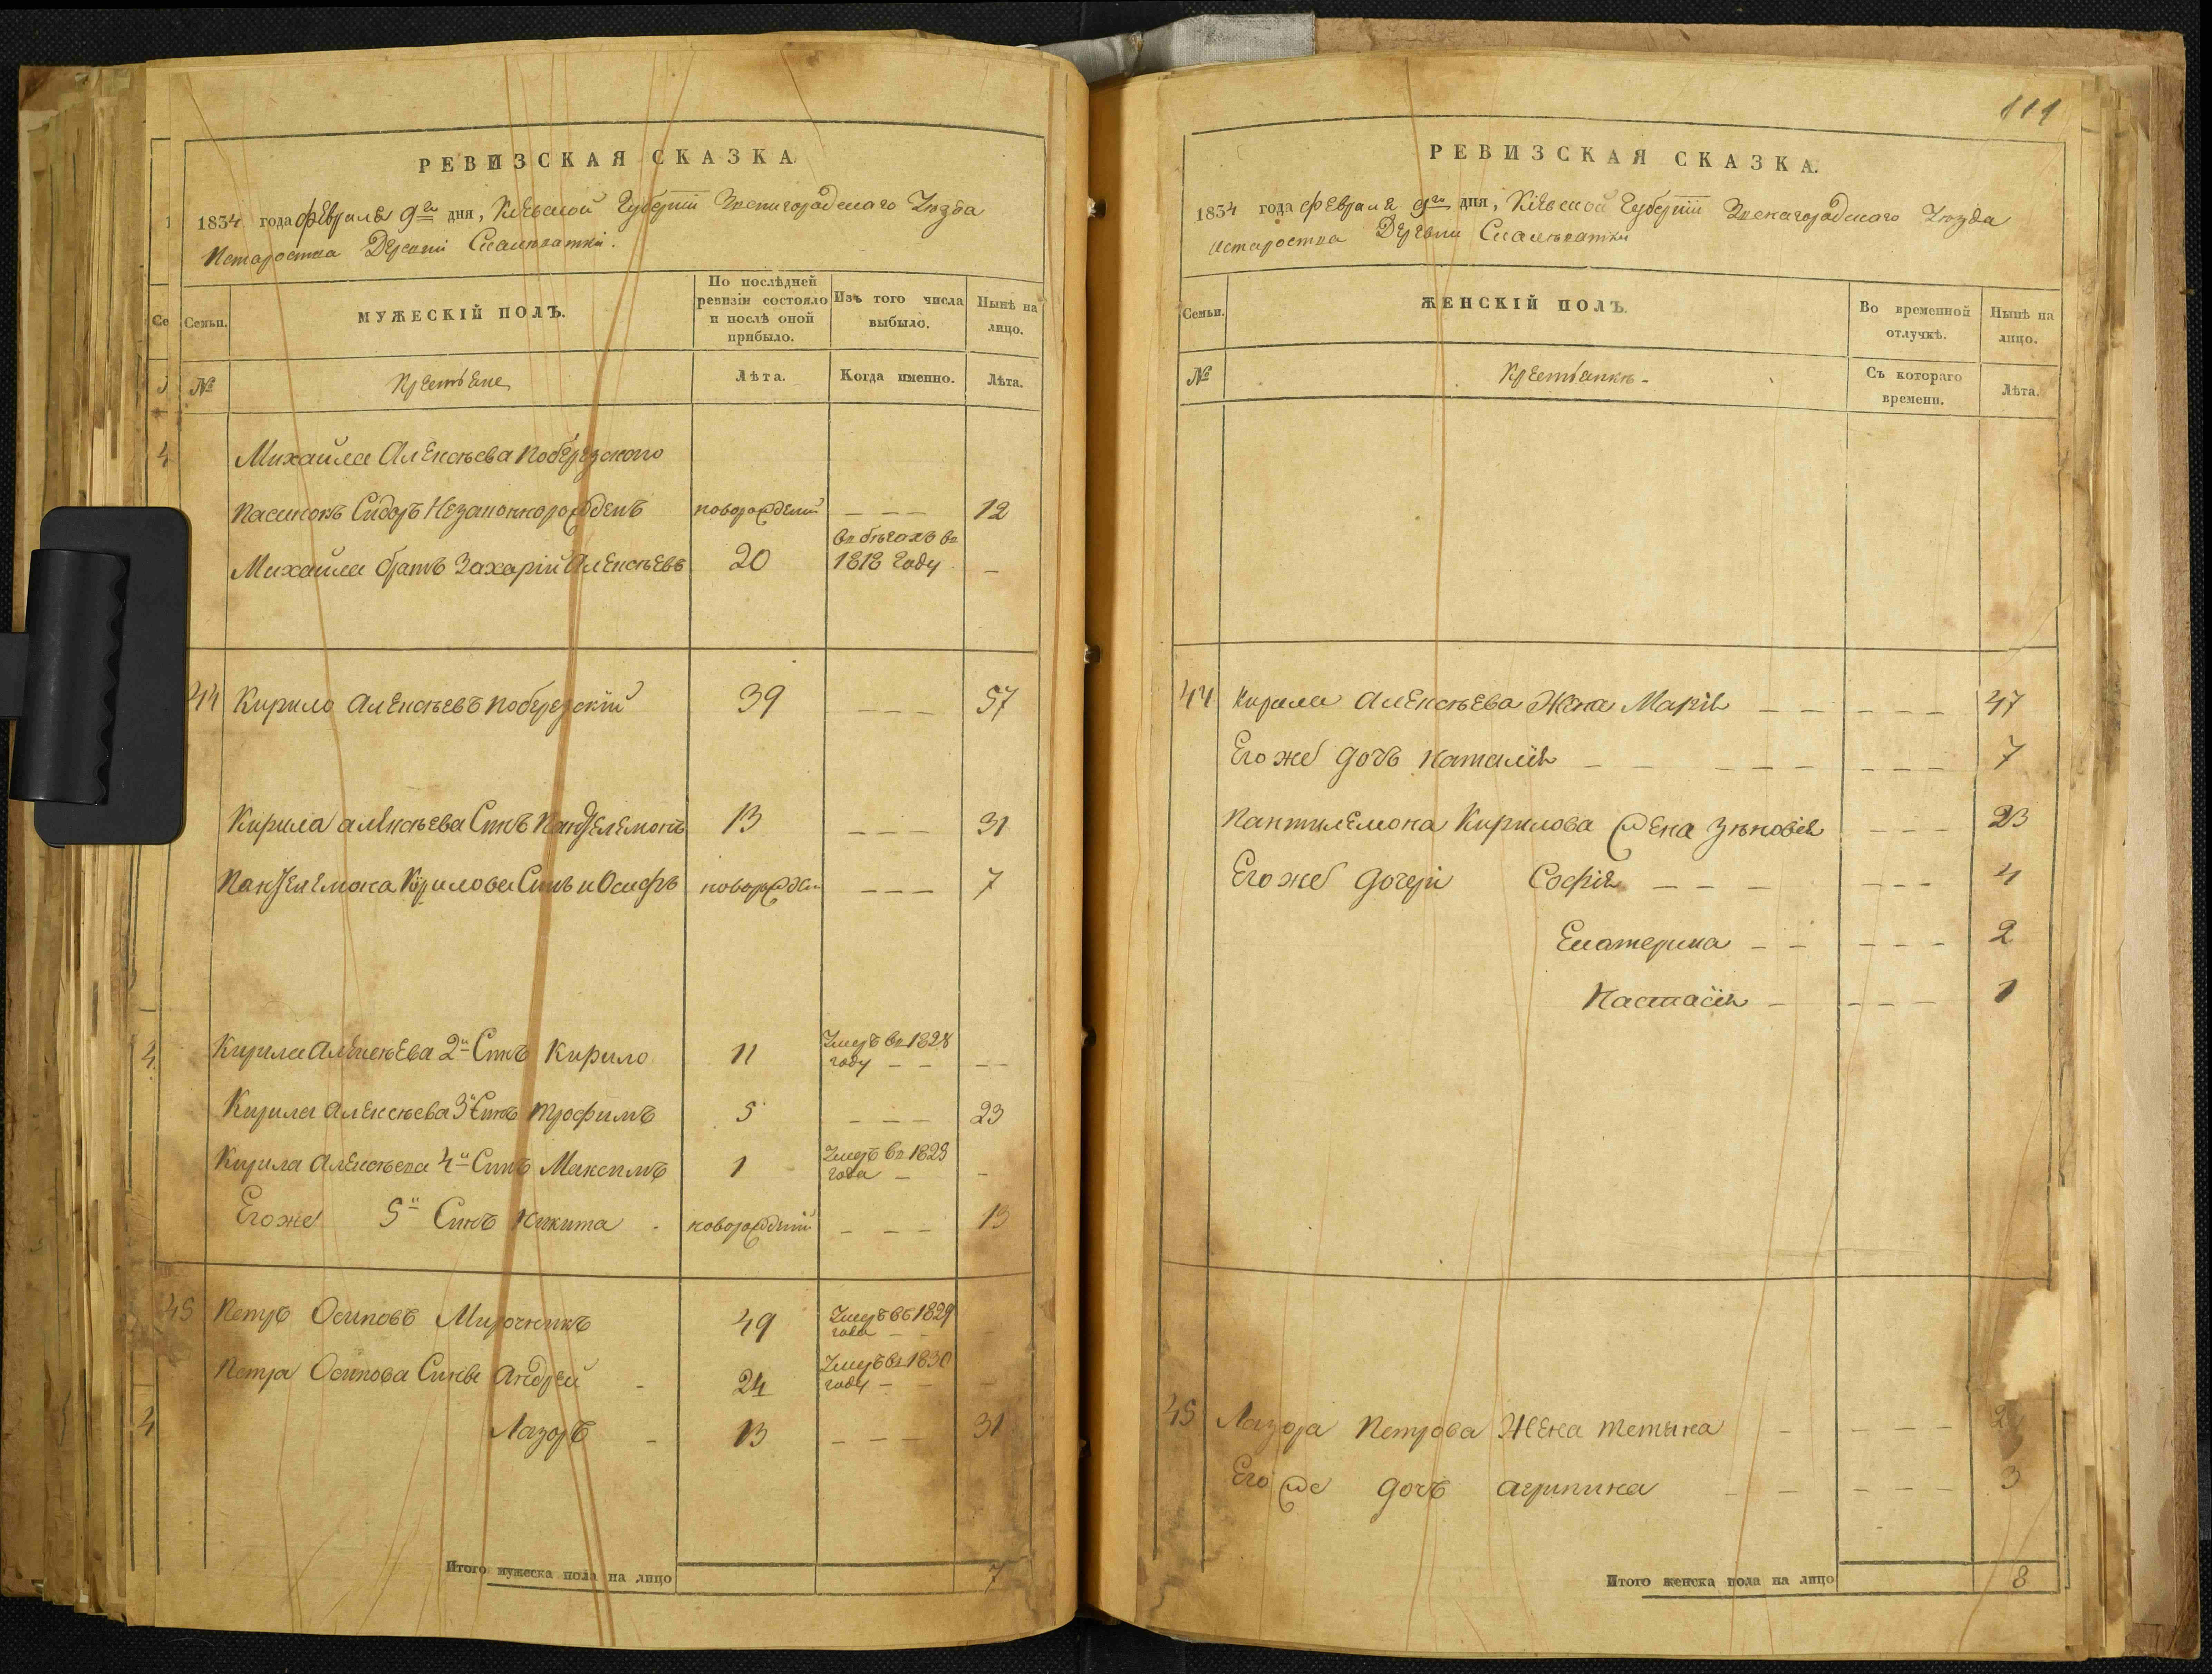 РЕВИЗСКАЯ СКАЗКА
1834 года февраля 9го дня, Кіевской Губерніи Звенигородского Уезда
Деревни
Семьи.
МУЖЕСКІЙ ПОЛЪ.
По послѣдней ревизіи состояло и послѣ оной прибыло.
Изъ того числа выбыло.
Нынѣ на лицо.
№
Крестьяне
Лѣта.
Когда именно.
Лѣта.
Михайла Алексѣева Поберезского
Пасинокъ Сидоръ Незаконнорожденъ новорожденій — — — 12
Михайла братъ Захарій Алексѣевъ 20 въ бѣгахъ въ 1818 году —
44 Кирило Алексѣевъ Поберезскій 39 — — — 57
Кирила Алексѣева Синъ Пантелемонъ 13 — — — 31
Пантелемона Кирилова Синъ Иосифъ новорожден — — — 7
Кирила Алексѣева 2й Синъ Кирило 11 Умеръ въ 1828 году — — — —
Кирила Алексѣева 3й Синъ Трофимъ 5 — — — 23
Кирила Алексѣева 4й Синъ Максимъ 1 Умеръ въ 1829 года — —
Егоже 5й Синъ Никита новорожденій — — — 13
45 Петръ Осиповъ Мирочникъ 49 Умеръ въ 1829 года — —
Петра Осипова Сини Андрей — 24 Умеръ въ 1830 году — — —
Лазоръ — 13 — — — 31
Итого мужеска пола на лицо 7
111
РЕВИЗСКАЯ СКАЗКА.
1834 года февраля 9го дня, Кіевской Губерніи Звенигородского Уезда
Деревни
Семьи.
ЖЕНСКІЙ ПОЛЪ.
Во временной отлучкѣ.
Нынѣ на лицо.
№
Крестьянки
Съ котораго времени.
Лѣта.
44 Кирила Алексѣева Жена Марія — — — — — 47
Егоже дочъ Наталія — — — — — — — — 7
Пантилемона Кирилова жена Зѣновія — — — 23
Егоже дочери Софія — — — — — — 4
Екатерина — — — — — 2
Настасія — — — — 1
45 Лазора Петрова Жена Тетяна — — — — 2
Егоже дочъ Агрипина — — — — — 3
Итого женска пола на лицо 8